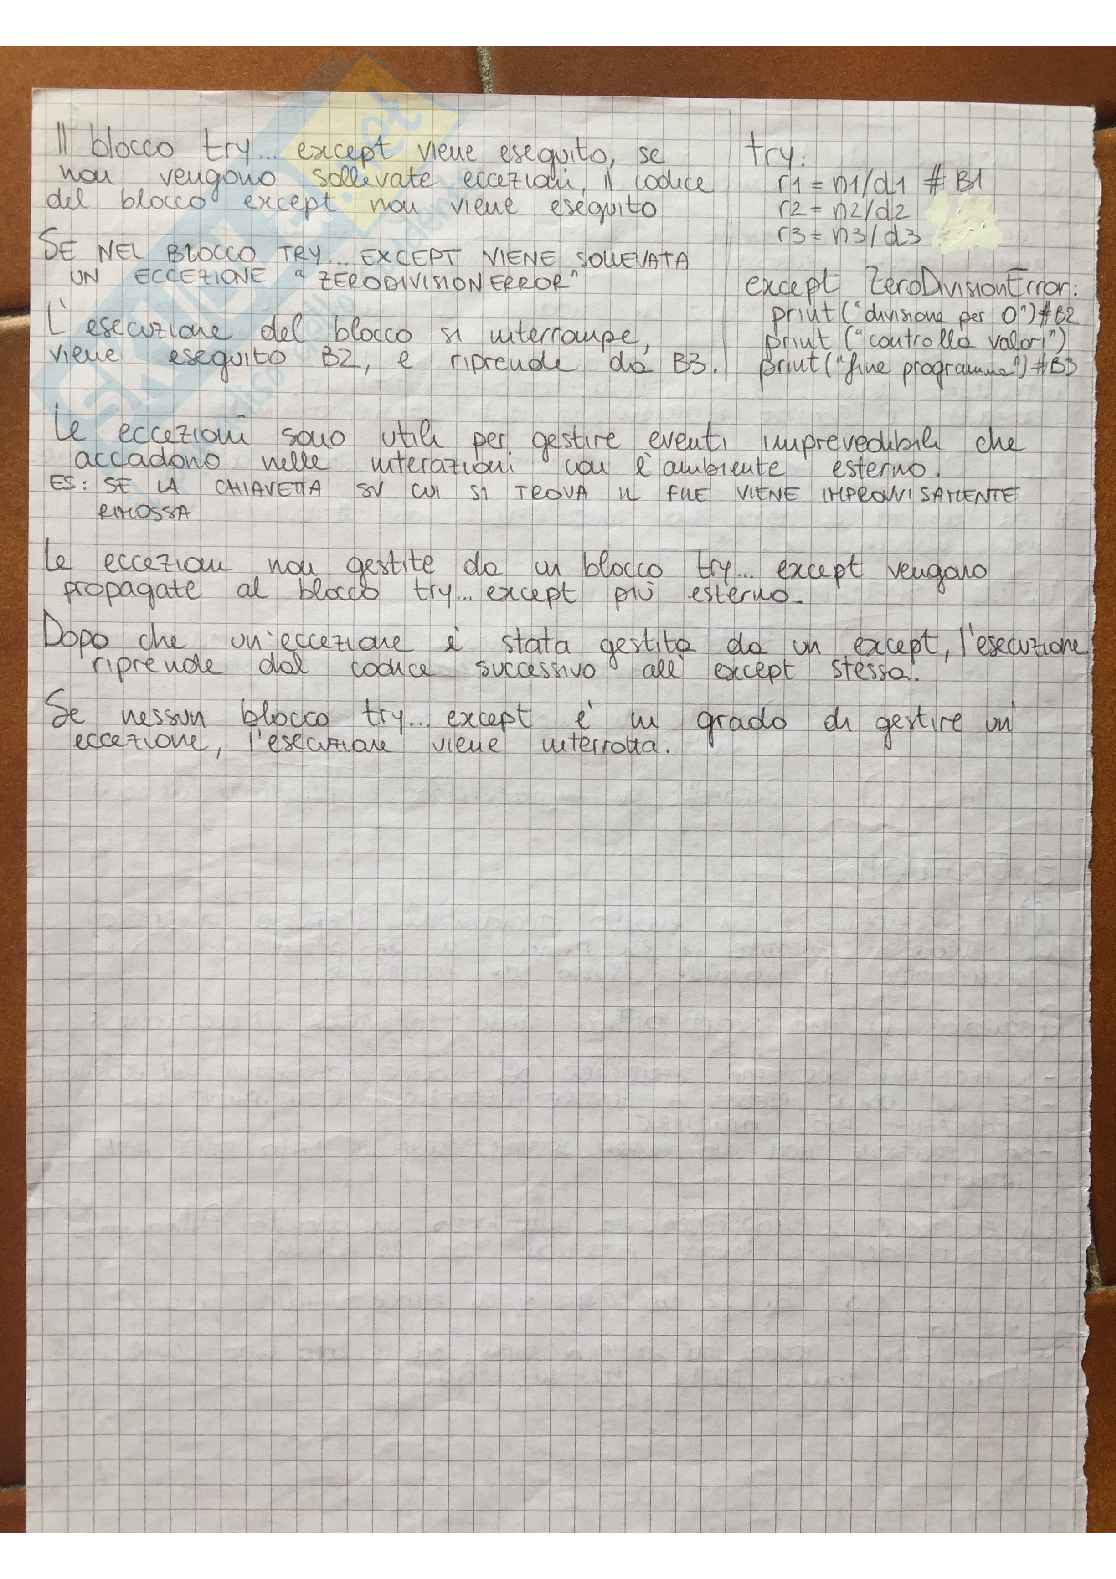 Il blocco try... except viene eseguito, se
non vengono sollevate eccezioni, il codice
del blocco except non viene eseguito
SE NEL BLOCCO TRY... EXCEPT VIENE SOLLEVATA
UN ECCEZIONE "ZERODIVISIONERROR"
L'esecuzione del blocco si interrompe,
viene eseguito B2, e riprende da B3.
try:
r1 = n1/d1 # B1
r2 = n2/d2
r3 = n3/d3
except ZeroDivisionError:
print("divisione per 0")#B2
print("controlla valori")
print("fine programma")#B3
Le eccezioni sono utili per gestire eventi imprevedibili che
accadono nelle interazioni con l'ambiente esterno.
ES: SE LA CHIAVETTA SU CUI SI TROVA IL FILE VIENE IMPROVVISAMENTE
RIMOSSA
Le eccezioni non gestite da un blocco try... except vengono
propagate al blocco try... except più esterno.
Dopo che un'eccezione è stata gestita da un except, l'esecuzione
riprende dal codice successivo all'except stessa.
Se nessun blocco try... except è in grado di gestire un'
eccezione, l'esecuzione viene interrotta.